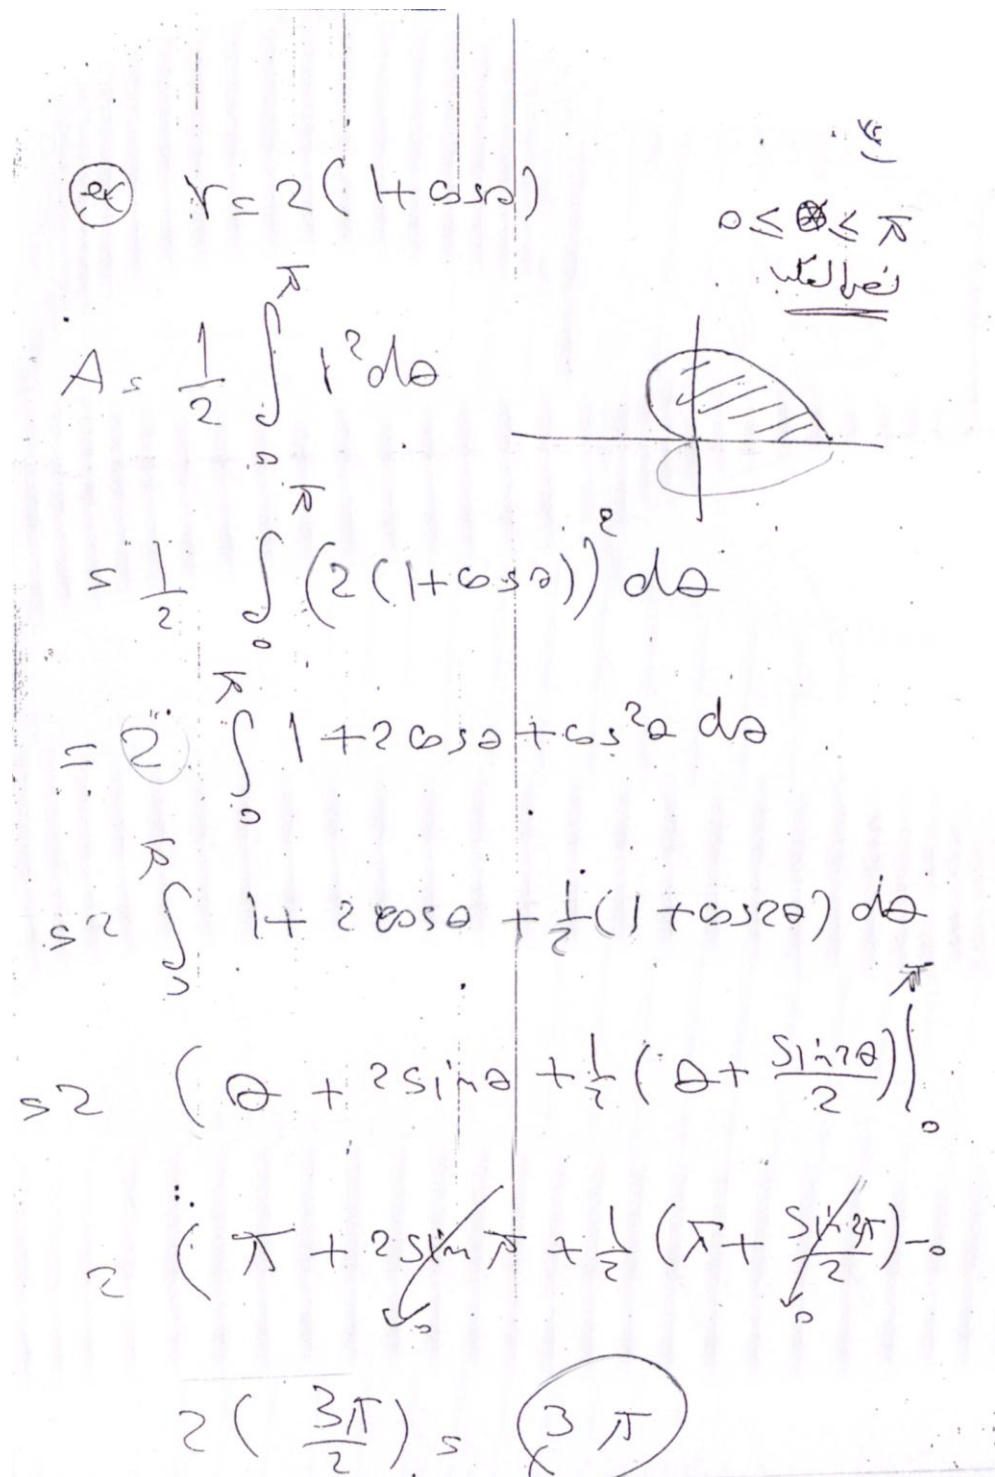 ex r = 2(1+cosθ)
0 ≤ θ ≤ π
نصف القلب
A = 1/2 ∫₀^π r² dθ
= 1/2 ∫₀^π (2(1+cosθ))² dθ
= 2 ∫₀^π 1+2cosθ+cos²θ dθ
= 2 ∫₀^π 1+2cosθ+1/2(1+cos2θ) dθ
= 2 (θ + 2sinθ + 1/2(θ + sin2θ/2)|₀^π
2 (π + 2sinπ + 1/2 (π + sin2π/2) - 0
0 0
2(3π/2) = 3π